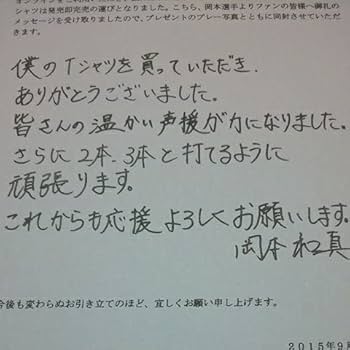 オンラインで
シャツは発売即完売の運びとなりました。こちら、岡本選手よりファンの皆様へ御礼の
メッセージを受け取りましたので、プレゼントのプレー写真とともに同封させていただ
きます。
僕のTシャツを買っていただき、
ありがとうございました。
皆さんの温かい声援が力になりました。
さらに2本、3本と打てるように
頑張ります。
これからも応援よろしくお願いします。
岡本和真
今後も変わらぬお引き立てのほど、宜しくお願い申し上げます。
2015年9月